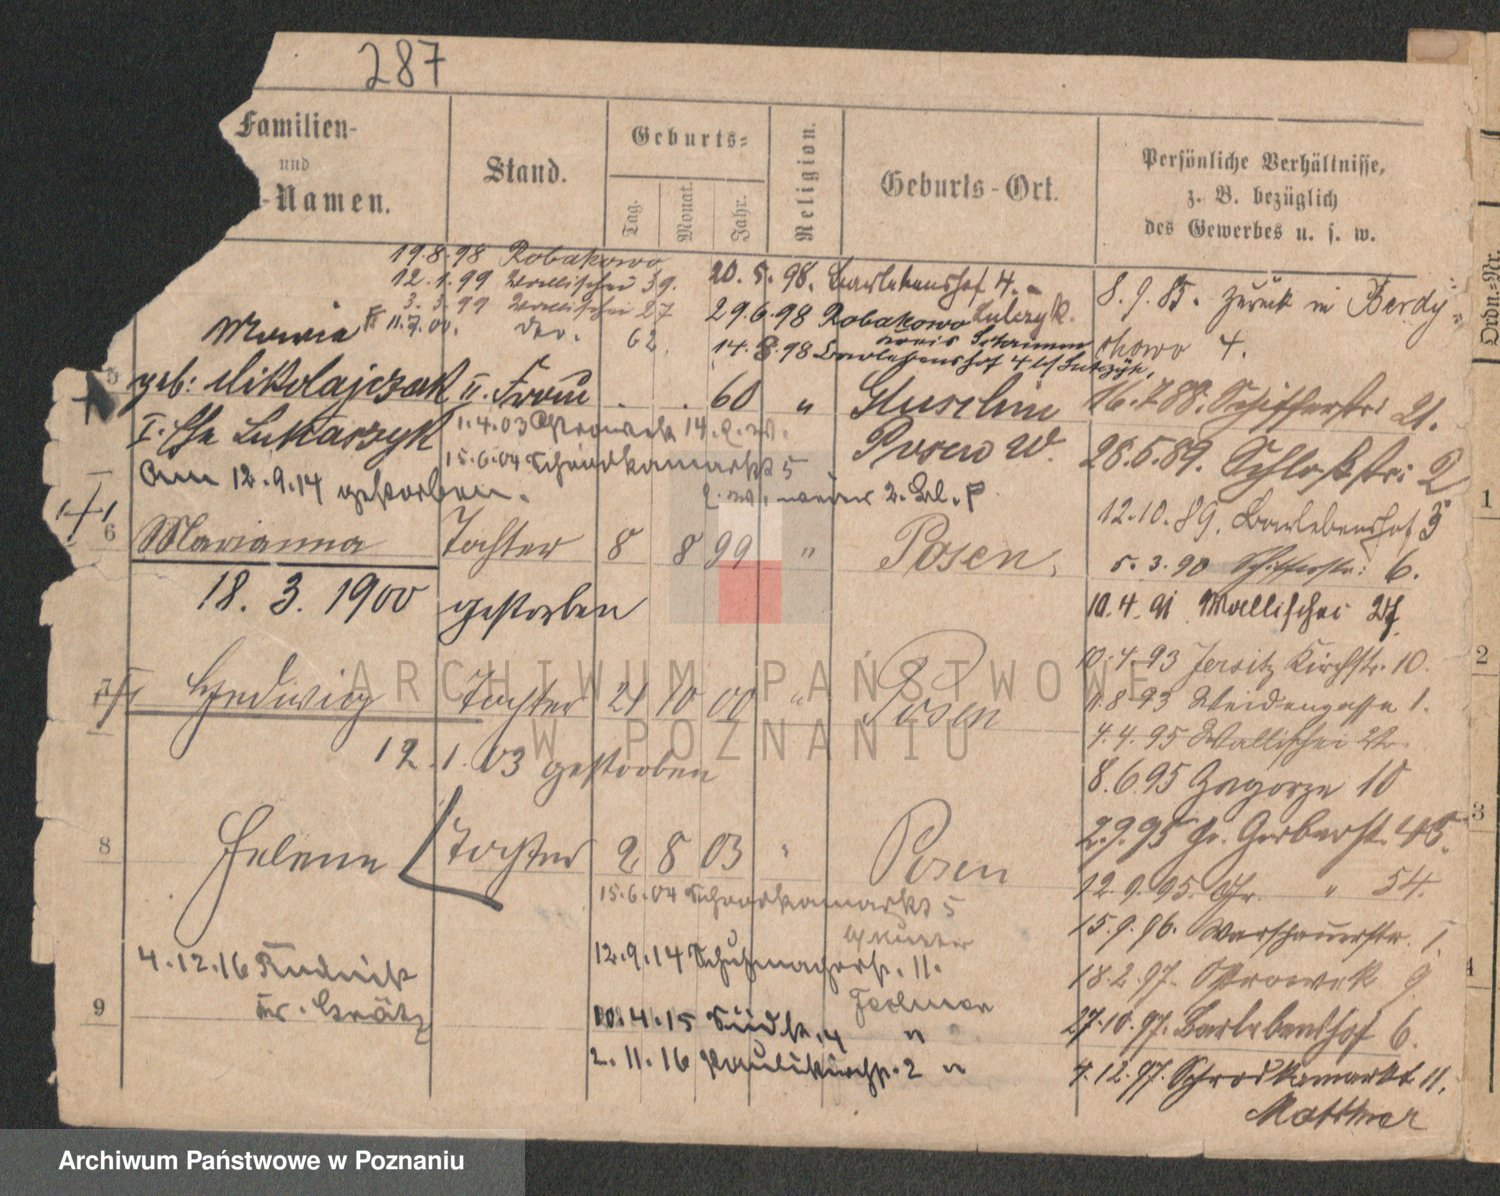 287
Familien-
und
-Namen.
Stand.
Geburts-
Tag.
Monat.
Jahr.
Religion.
Geburts-Ort.
Persönliche Verhältnisse,
z. B. bezüglich
des Gewerbes u. s. w.
Ordn.-Nr.
19.8.98 Robakowo
12.1.99 Wallischei 39.
3.3.99 Wallischei 27
11.7.00. dto. 62.
20.5.98. Barlebenshof 4.
29.6.98 Robakowo
14.8.98 Barlebenshof 4
8.9.85. zurück in Berdy-
chowo 4.
Maria
5 geb: Mikolajczak II. Frau . . 60 " Gluschin
16.7.88. Schifferstr: 21.
I. Ehe Lukaszyk
1.4.03 Ostrowek 14.
Posen W.
28.5.89. Schloßstr: 2
15.6.04 Schrodkamarkt 5
Am 12.9.14 gestorben.
12.10.89. Barlebenshof 3
6 Marianna Tochter 8 8 99 " Posen.
5.3.90 Schifferstr: 6.
18.3.1900 gestorben
10.4.91 Wallischei 27.
10.4.93 Jersitz Kirchstr. 10.
7 Hedwig Tochter 21 10 00 " Posen
1.8.93 Weidengasse 1.
4.4.95 Wallischei 22.
12.1.03 gestorben
8.6.95 Zagorze 10
2.9.95 Gr. Gerberstr. 45.
8 Helene Tochter 2 8 03 " Posen
12.9.95. Gr. " 54.
15.6.04 Schrodkamarkt 5
15.9.96. Warschauerstr.
4.12.16 Rudnik
12.9.14 Schuhmacherstr. 11.
18.2.97. Ostrowek 9
9 Kr. Grätz
10.4.15 Südstr. 4 "
27.10.97. Barlebenshof 6.
2.11.16 Paulikirchstr. 2 "
4.12.97. Schrodkamarkt 11.
1
2
3
4
ARCHIWUM PAŃSTWOWE
W POZNANIU
Archiwum Państwowe w Poznaniu